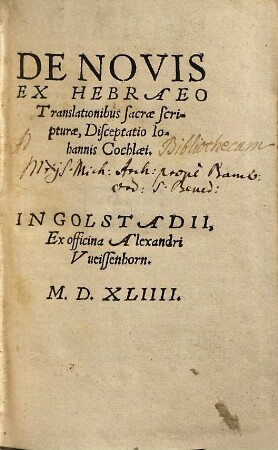 DE NOVIS
EX HEBRAEO
Translationibus sacræ scri-
pturæ, Disceptatio Io-
hannis Cochlæi. Bibliothecam
Mich: Arch: propè Bamb:
ord: S: Bened:
INGOLSTADII,
Ex officina Alexandri
Vueissenhorn.
M. D. XLIIII.